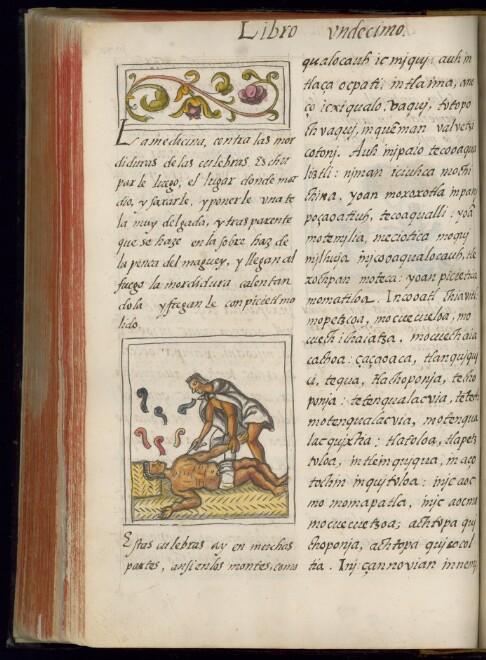 Libro vndecimo.
La medicina, contra las mor
diduras de las culebras. Es chu
parle luego, el lugar donde mor
dio, y saxarle, y ponerle una te
la muy delgada, y trasparente
que se haze en la sobre haz de
la penca del maguey, y llegan al
fuego la mordidura calentan
dola y fregan le con picietl mo
lido.
Estas culebras ay en muchas
partes, ansi en los montes, como
qualocauh ic miquj: auh in
tlaça ocpati, in tlaima, ane
ço icxiqualo, vaquj, totopo
chvaquj, in quēman valvetzi
cotonj. Auh inipaio tecooaqua
liztli: njman iciuhca mochi
china, yoan moxoxotla in
poçaoatiuh, tecoaqualli: yoā
motemjlia, meciotica moquj
mjlhuja injcooaqualocauh, tle
xochpan moteca: yoan picietica
momatiloa. In cooatl chiavitl:
mopetzcoa, mocuecueloa, mo
cuech ichaiatza. mocuechaia
cachoa: çaçaoaca, tlanquiquj
ci, tequa, tlachoponja, techo
ponja: tetenqualacvia,
motenqualacvia, motenqua
lacqujxtia: tlatoloa, tlapetz
toloa, in tlein quiqua, in aço
tochin in quitoloa: injc aoc
mo momapatla, injc aocmo
mocuecuetzoa; achtopa qui
choponja, achtopa
tia. Inj çannovian innemj